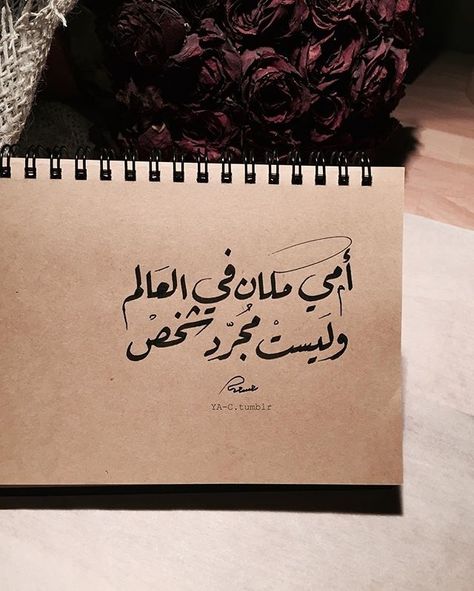 أمي مكان في العالم
وَليستْ مُجرّد شخصْ
YA-C.tumblr